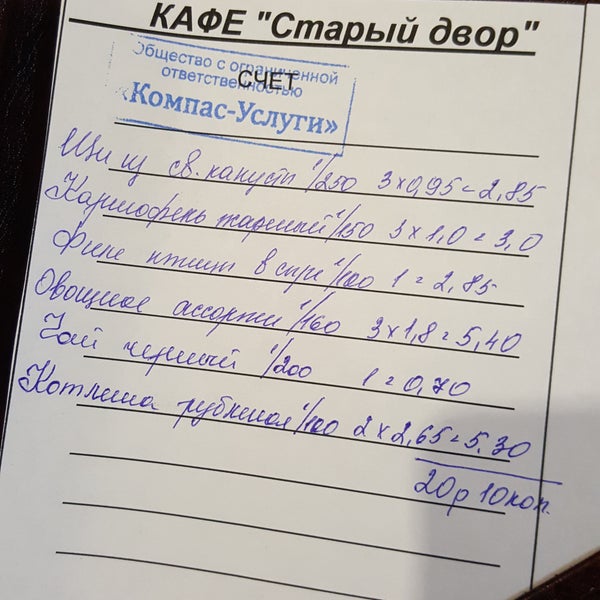 КАФЕ "Старый двор"
Общество с ограниченной
ответственностью
СЧЕТ
«Компас-Услуги»
Щи из св. капусты 1/250 3 x 0,95 = 2,85
Картофель жареный 1/150 3 x 1,0 = 3,0
Филе птицы в сыре 1/100 1 = 2,85
Овощное ассорти 1/160 3 x 1,8 = 5,40
Чай черный 1/200 1 = 0,70
Котлета рубленая 1/100 2 x 2,65 = 5,30
20р 10коп.